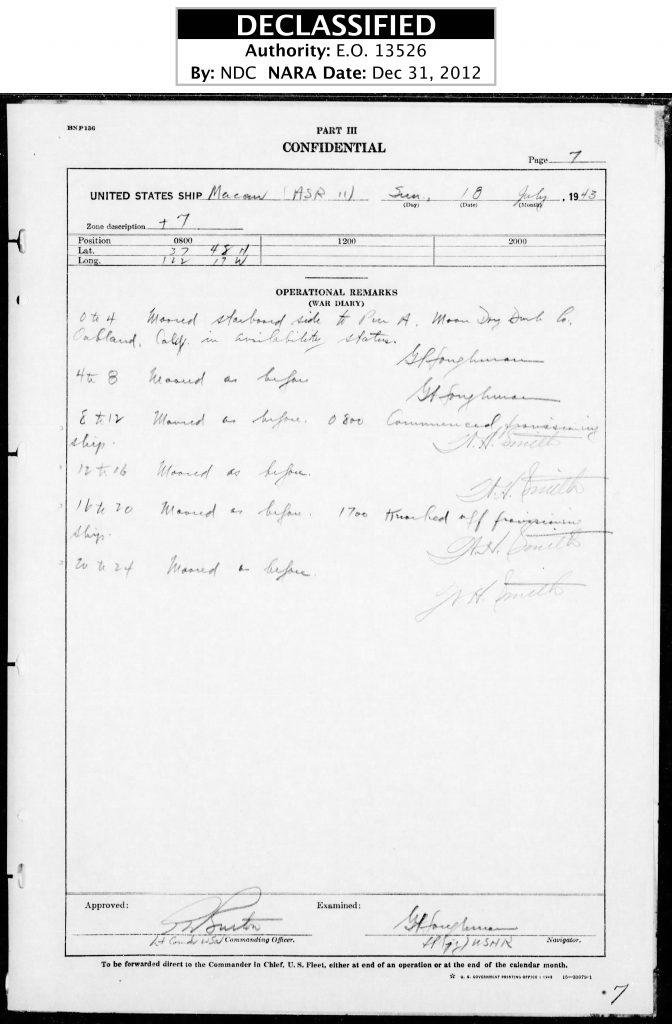 DECLASSIFIED
Authority: E.O. 13526
By: NDC NARA Date: Dec 31, 2012
BNP136
PART III
CONFIDENTIAL
Page 7
UNITED STATES SHIP Macaw (ASR 11) Sun, 18 July, 1943
(Day) (Date) (Month)
Zone description +7
Position 0800 1200 2000
Lat. 37 48 N
Long. 122 17 W
OPERATIONAL REMARKS
(WAR DIARY)
0 to 4 Moored starboard side to Pier A, Moore Dry Dock Co.
Oakland, Calif. in availability status.
4 to 8 Moored as before
8 to 12 Moored as before. 0800 Commenced provisioning
ship.
W.H. Smith
12 to 16 Moored as before.
W.H. Smith
16 to 20 Moored as before. 1700 Knocked off provisioning
ship.
W.H. Smith
20 to 24 Moored as before.
W.H. Smith
Approved: Examined:
Burton
Lt Comdr USN Commanding Officer. Lt (jg) USNR Navigator.
To be forwarded direct to the Commander in Chief, U. S. Fleet, either at end of an operation or at the end of the calendar month.
☆ U. S. GOVERNMENT PRINTING OFFICE : 1943
7